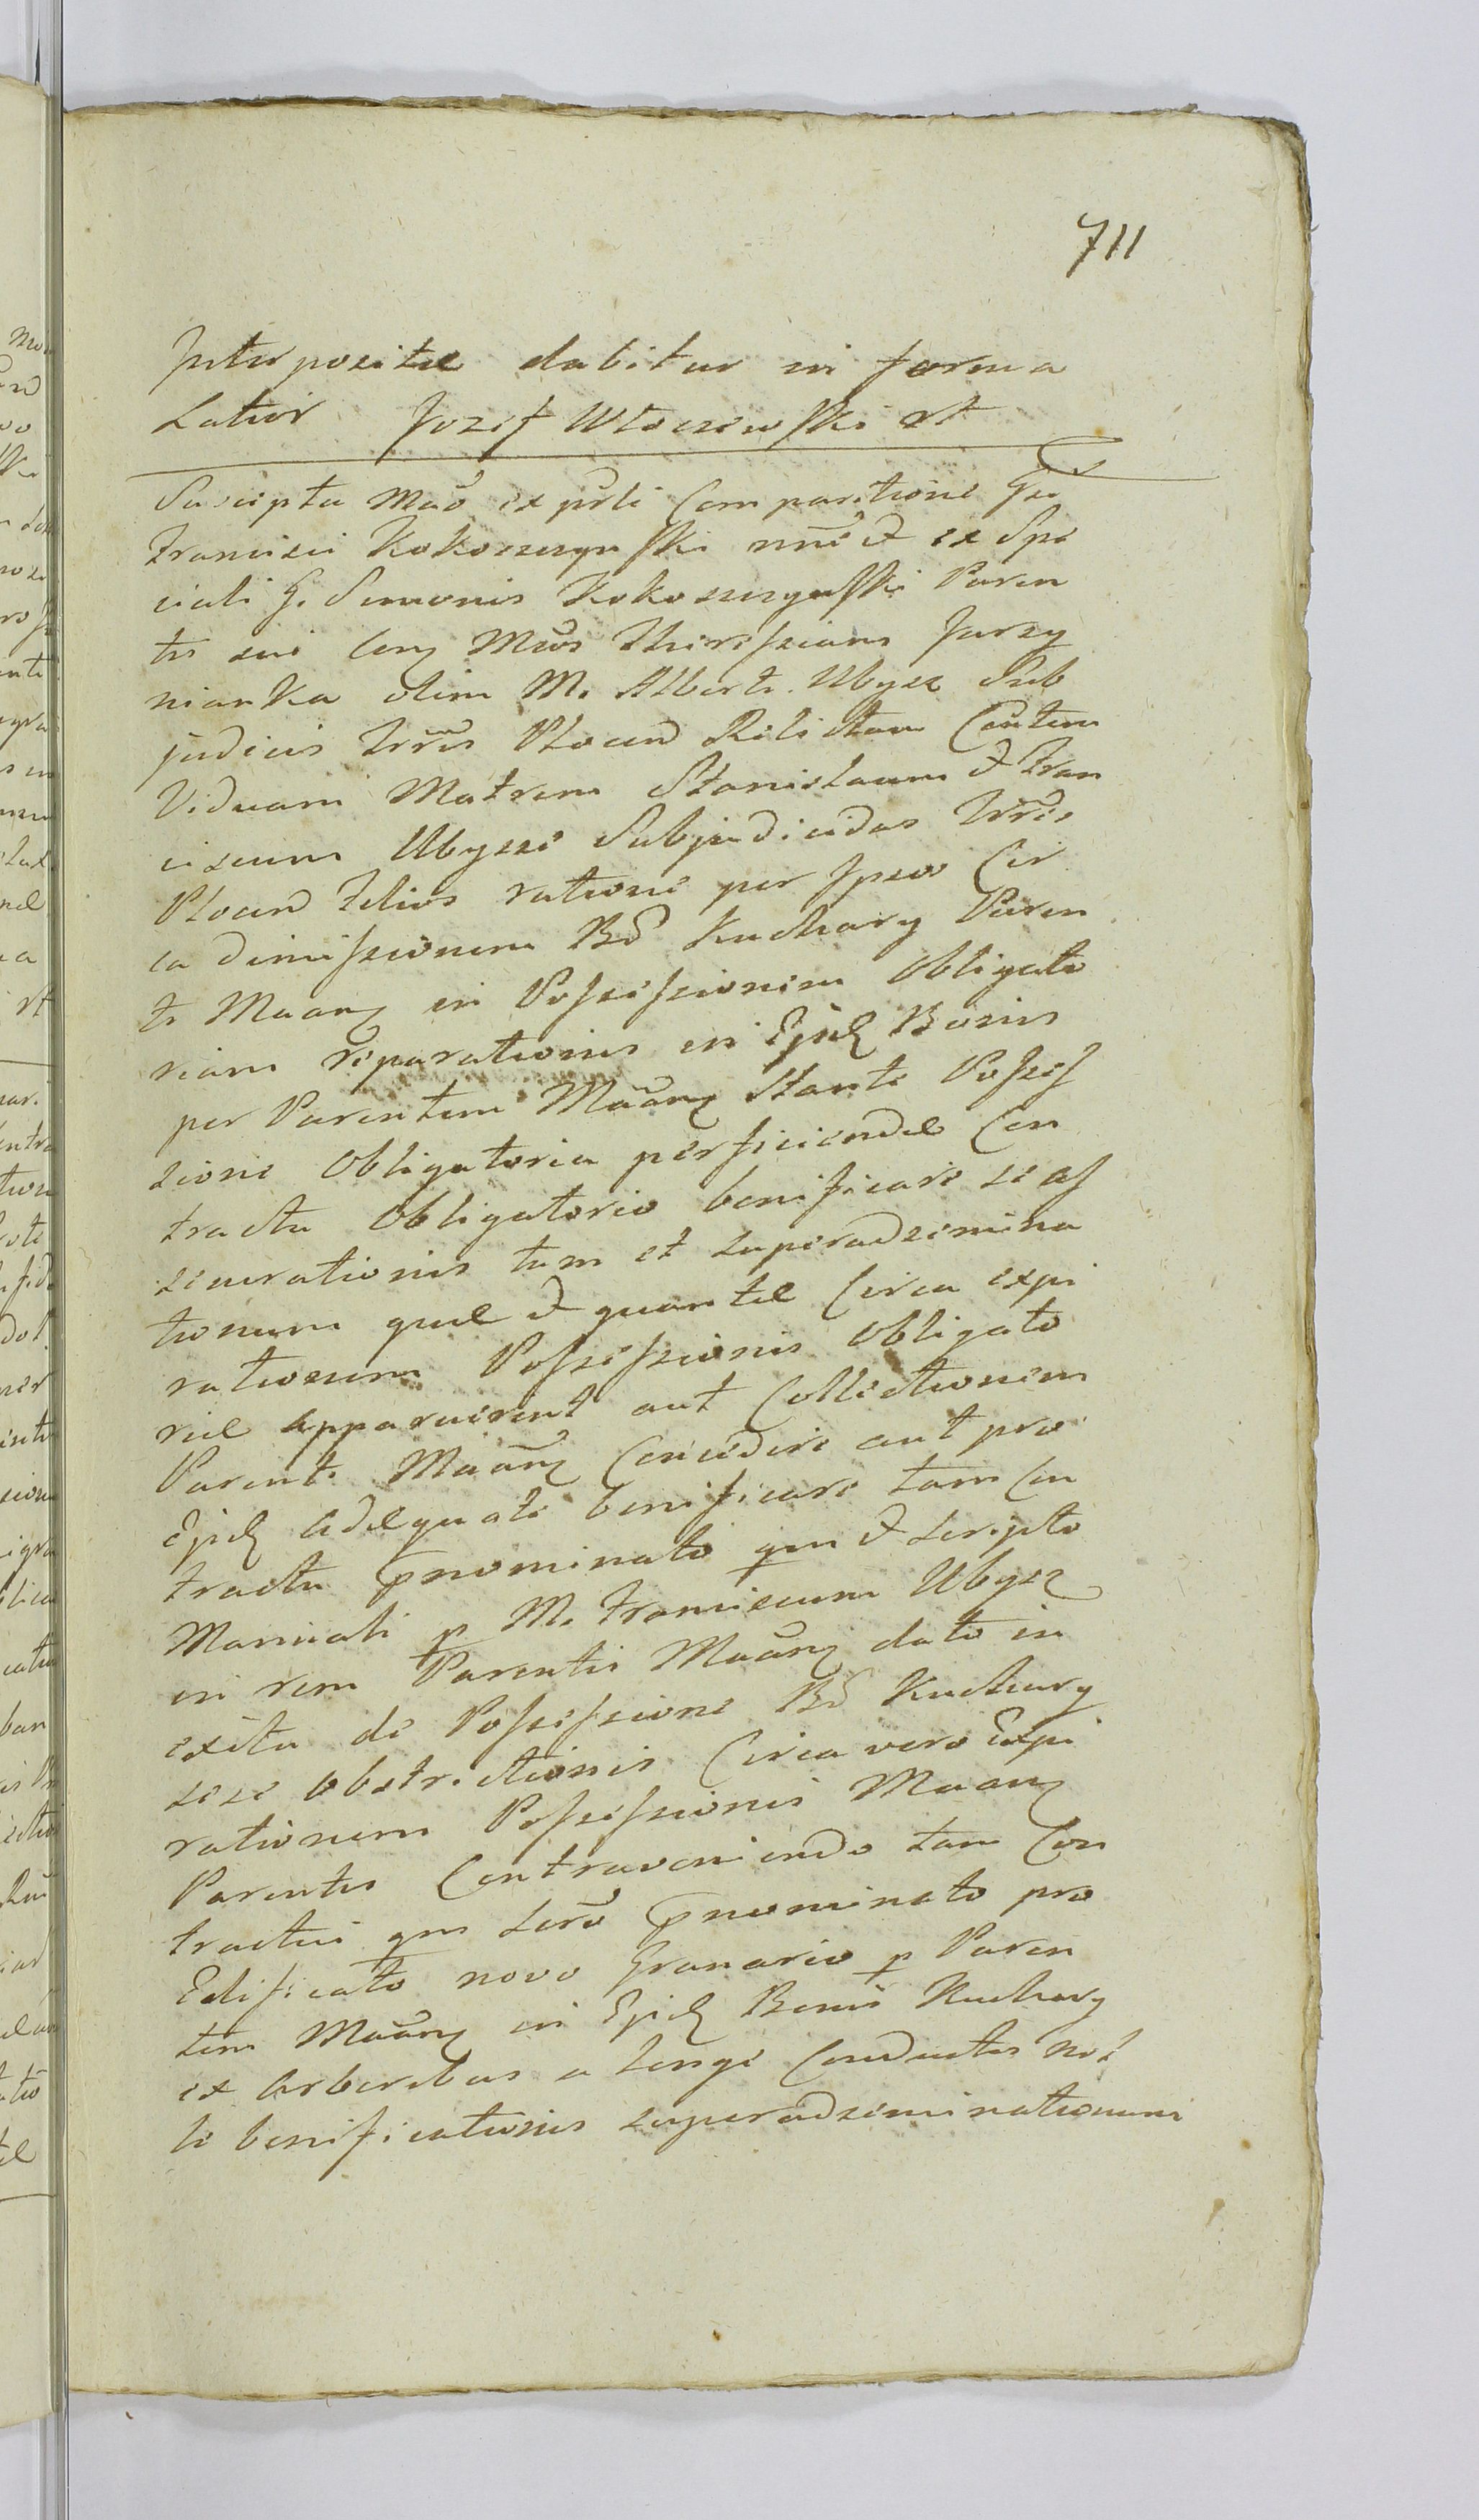 711
Interpositae dabitur in forma
Latior Jozef Włoczewski rt
Suscipta Mão ex prli Comparitione Gsi
Francisci Kokoszczynski nne et ex Spe
ciali G. Simonis Kokoszczynski Paren
tis sui Cong Mcos Theressiam Jurzy
nianka olim M. Alberti Ubysz Sub
judicis Trris Plocen Relictam Coutem
Viduam Matrem Stanislaum et Fran
ciscum Ubysze Subjudicidas Trris
Plocen Filios ratione per Ipsos Cir
ca dimissionem Br Kuchary Paren
ti Mãang in Possessionem Obligato
riam reparationis in Ejsd Bonis
per Parentem Mãang Stante Posses
sione Obligatoria perficiendae Con
tractu Obligatorio benificare se as
securationis tum et superadsemina
tionum quae et quantae Circa expi
rationem Possessionis Obligato
riae apparuerint aut Collectionem
Parenti Mãang Concedere aut pro
Ejsd Adaequate benificare tam Con
tractu pnominato qm et Scripto
Manuali p M. Franciscum Ubysz
in rem Parentis Mãang dato in
exitu de Possessione Br Kuchary
sese obstrictionis Circa vero Expi
rationem Possessionis Mãang
Parentis Contraveniendo tam Con
tractui qm Scro pnominato pro
Edificato novo Granario p Paren
tem Mãang in Ejsd Bonis Kuchary
ex Arboribus a longe Conductis nol
le benificationis superadseminationum